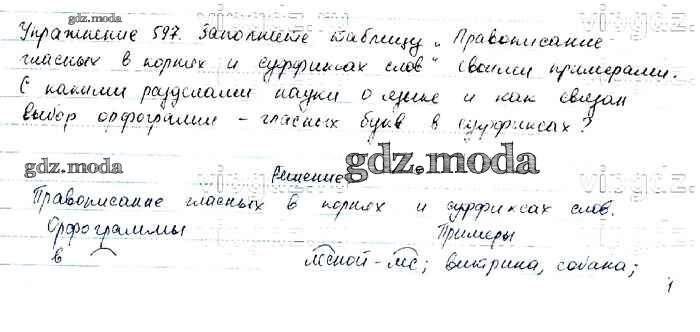 gdz.moda
Упражнение 597. Заполните таблицу „Правописание
гласных в корнях и суффиксах слов“ своими примерами.
С какими разделами науки о языке и как связан
выбор орфограмм - гласных букв в суффиксах?
gdz.moda
gdz.moda
Решение
Правописание гласных в корнях и суффиксах слов.
Орфограммы Примеры
в лесной - лес; витрина, собака;
1